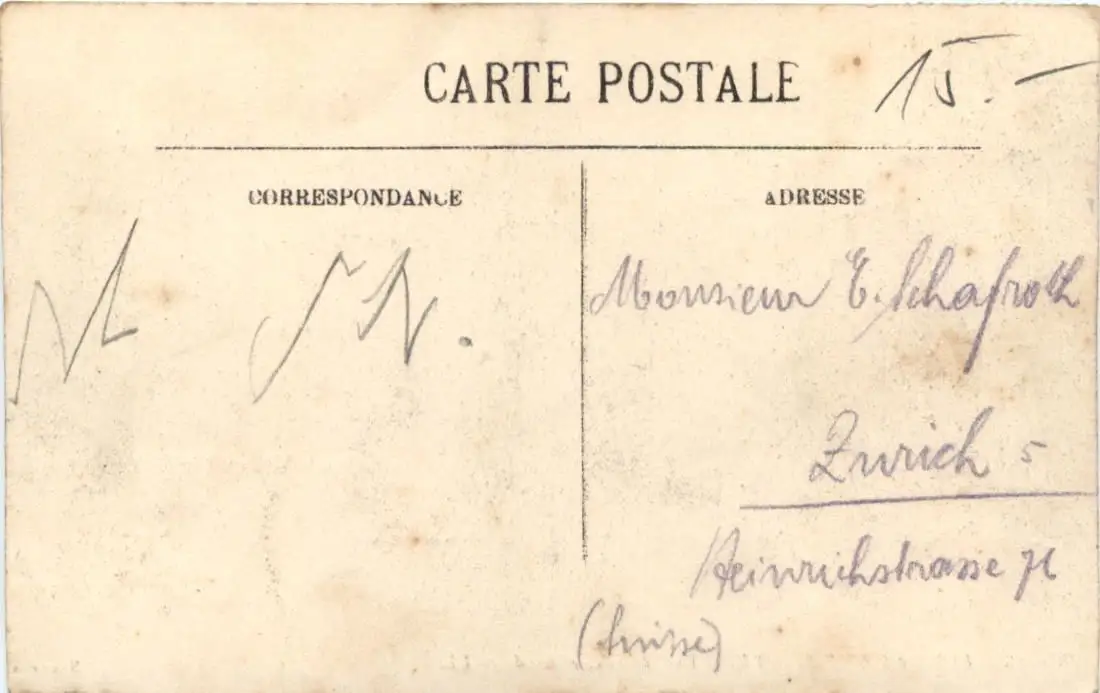 CARTE POSTALE
15.-
CORRESPONDANCE
ADRESSE
Monsieur E. Schafroth
Zurich 5
Heinrichstrasse
(Suisse)